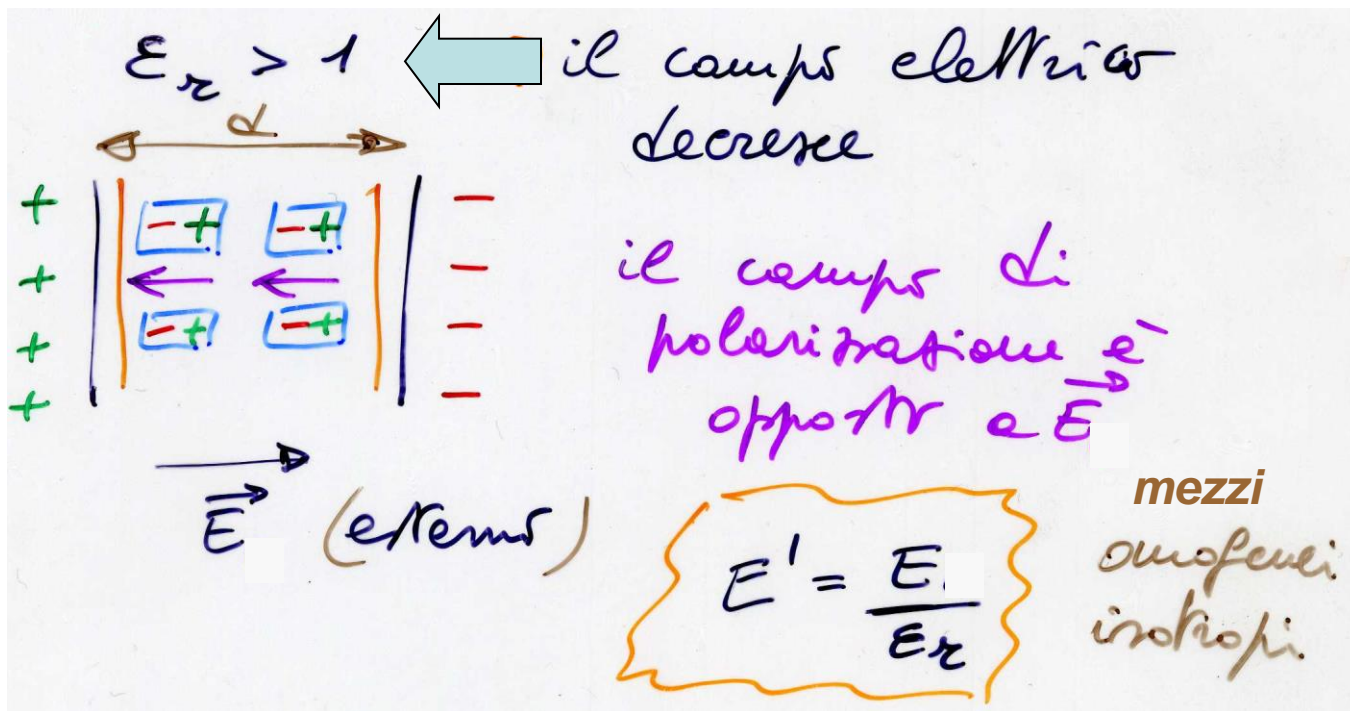 εr > 1
il campo elettrico
decresce
d
+ - + - + -
+ -
il campo di
+ - + - + -
polarizzazione è
+ -
opposto a E⃗
E⃗ (esterno)
mezzi
omogenei
isotropi.
E' = E / εr